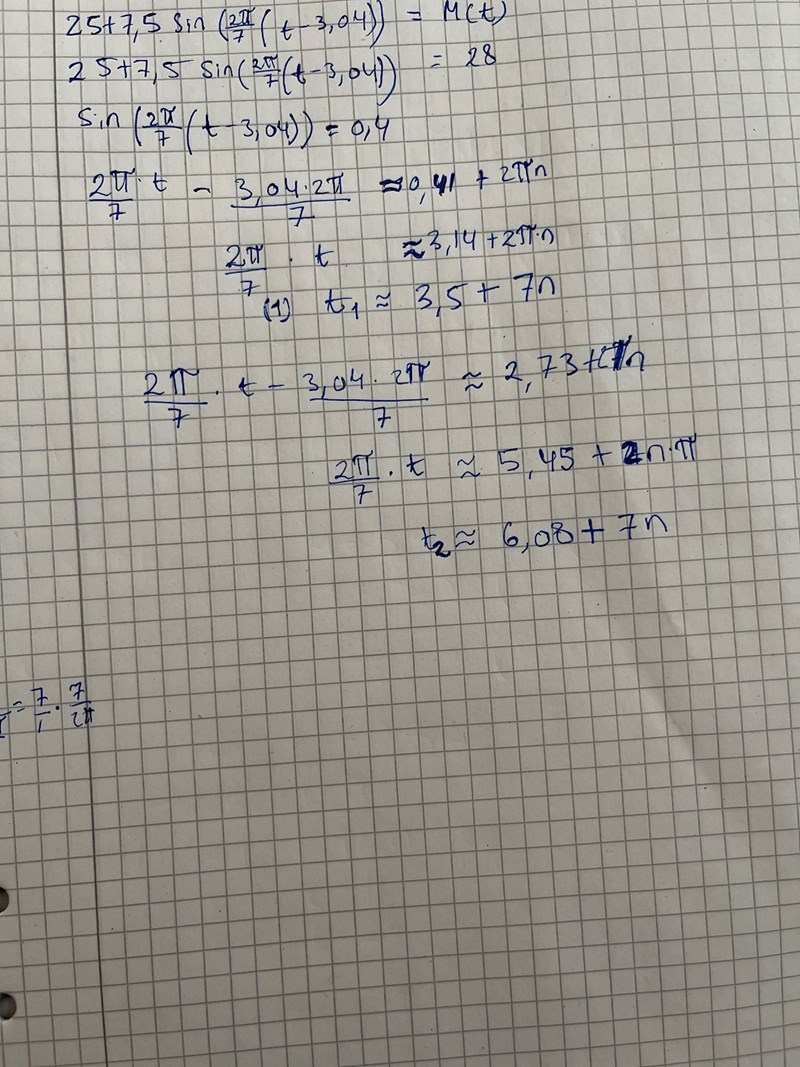 25+7,5 sin (2π/7 (t-3,04)) = M(t)
25+7,5 sin(2π/7(t-3,04)) = 28
Sin (2π/7 (t-3,04)) = 0,4
2π/7 · t - 3,04·2π/7 ≈0,41 + 2πn
2π/7 · t ≈3,14+2π·n
(1) t₁ ≈ 3,5 + 7n
2π/7 · t - 3,04·2π/7 ≈ 2,73+
2π/7 · t ≈ 5,45 + 2n·π
t₂ ≈ 6,08 + 7n
= 7/1 · 7/2π